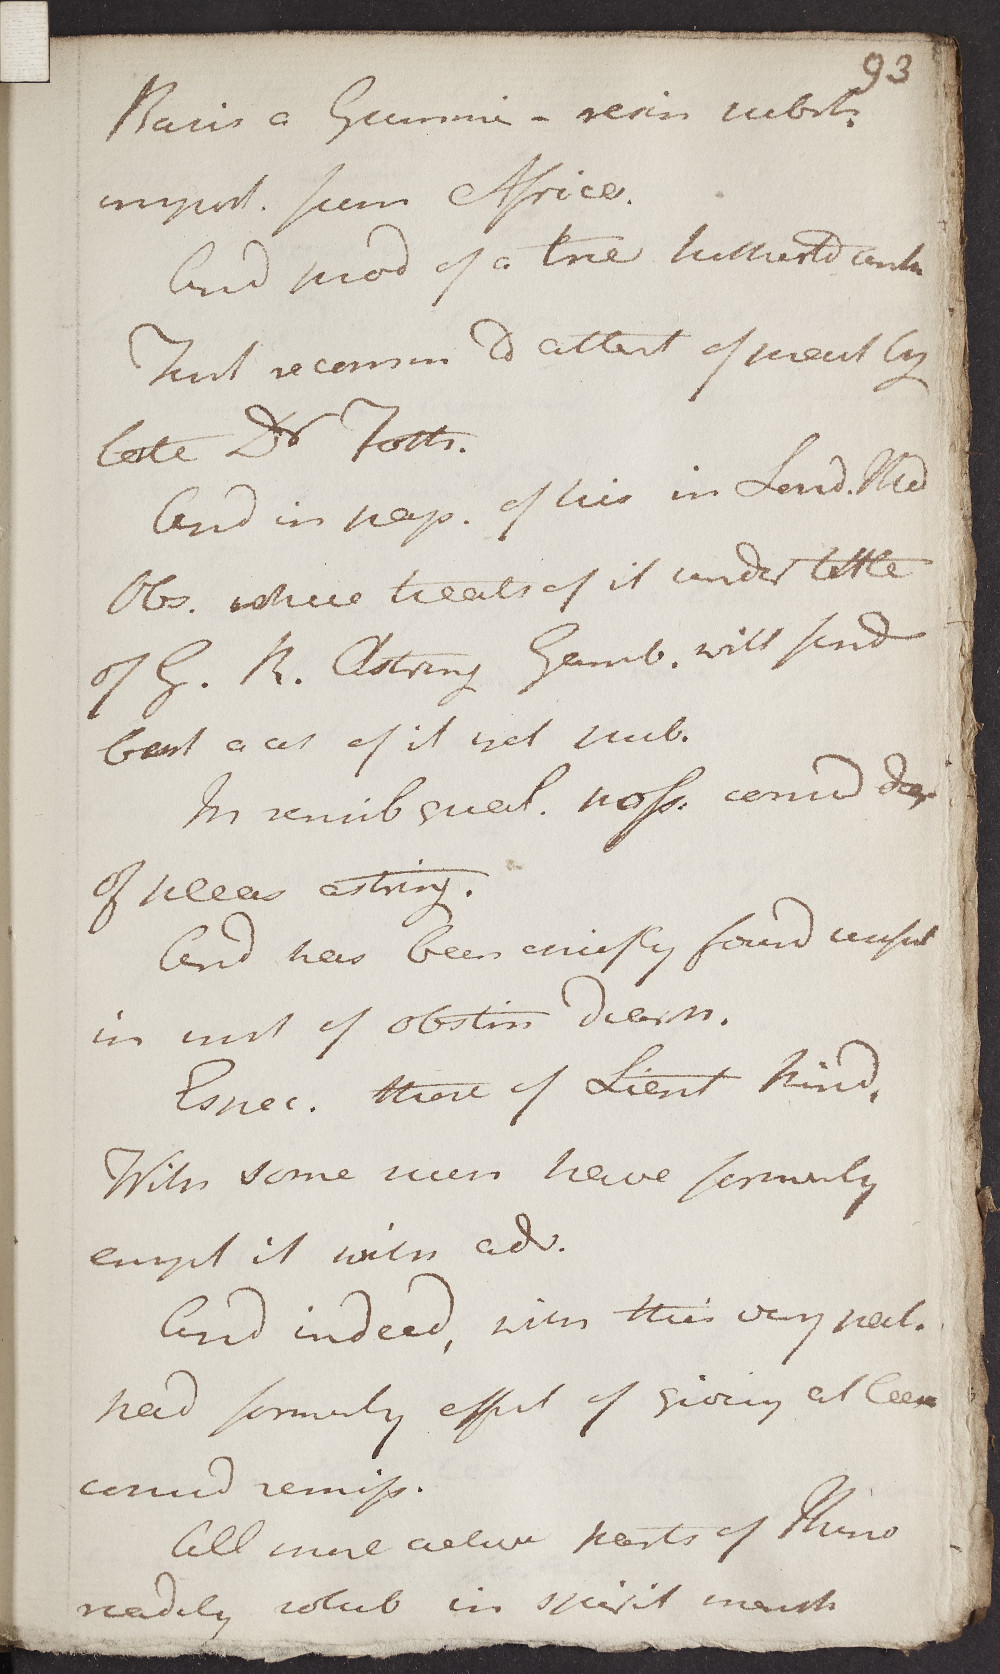 93
Basis a Gummi - resin subst.
import. from Africa.
And prod of a tree hitherto unkn
First recomm to attent of pract by
late Dr Foth.
And in pap. of his in Lond. Med
Obs. where treats of it under tittle
of G. R. Astring Gamb. will find
best acct of it yet pub.
In sensib qual. poss. consid deg
of pleas astring.
And has been chiefly found useful
in inst of obstin diarrh.
Espec. those of Lient kind.
With some pract have formerly
empl it with adv.
And indeed, with this very pat.
had formerly effect of giving at least
consid remiss.
All more active parts of Kino
readily solub in spirit menstr